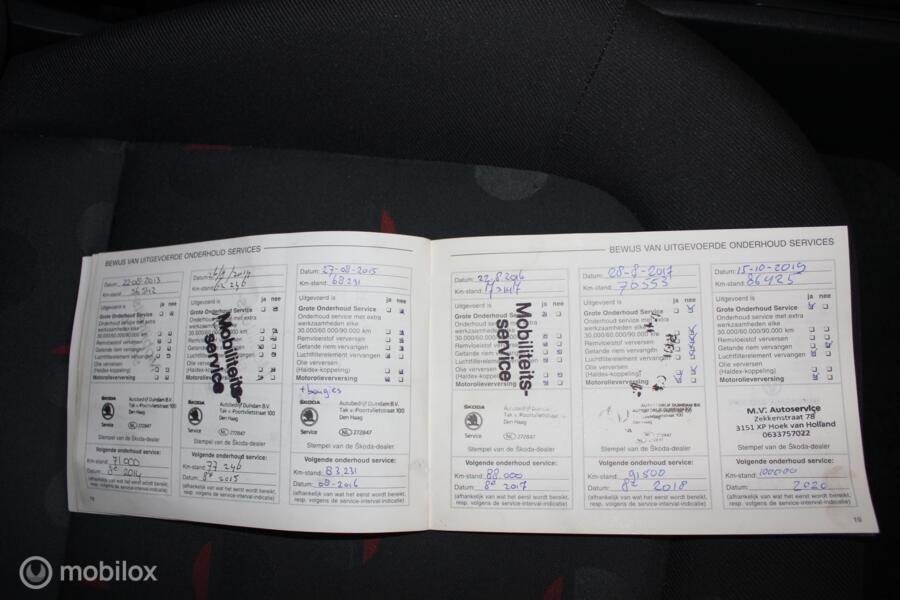 BEWIJS VAN UITGEVOERDE ONDERHOUD SERVICES
Datum: 22-08-2013
Km-stand:
Uitgevoerd is ja nee
Grote Onderhoud Service
Onderhoud service met extra
werkzaamheden elke
30.000/60.000/90.000 km
Remvloeistof verversen
Getande riem vervangen
Luchtfilterelement vervangen
Olie verversen
(Haldex-koppeling)
Motorolieverversing
ŠKODA
Service
Autobedrijf Duindam B.V.
Tak v. Poortvlietstraat 100
Den Haag
NL 272847
Stempel van de Škoda-dealer
Volgende onderhoud service:
Km-stand: 71.000
Datum: 8e 2014
(afhankelijk van wat het eerst wordt bereikt,
resp. volgens de service-interval-indicatie)
Datum: 2014
Km-stand: 246
Uitgevoerd is ja nee
Grote Onderhoud Service
Mobiliteits-
service
Volgende onderhoud service:
Km-stand: 77.246
Datum: 8e 2015
(afhankelijk van wat het eerst wordt bereikt,
resp. volgens de service-interval-indicatie)
Datum: 27-08-2015
Km-stand: 68231
Uitgevoerd is ja nee
Grote Onderhoud Service
Onderhoud service met extra
werkzaamheden elke
30.000/60.000/90.000 km
Remvloeistof verversen
Getande riem vervangen
Luchtfilterelement vervangen
Olie verversen
(Haldex-koppeling)
Motorolieverversing
+ bougies
ŠKODA
Service
Autobedrijf Duindam B.V.
Tak v. Poortvlietstraat 100
Den Haag
NL 272847
Stempel van de Škoda-dealer
Volgende onderhoud service:
Km-stand: 83231
Datum: 08-2016
(afhankelijk van wat het eerst wordt bereikt,
resp. volgens de service-interval-indicatie)
BEWIJS VAN UITGEVOERDE ONDERHOUD SERVICES
Datum: 22.8.2016
Km-stand:
Uitgevoerd is ja nee
Grote Onderhoud Service
Mobiliteits-
service
ŠKODA
Service
Autobedrijf Duindam B.V.
Tak v. Poortvlietstraat 100
Den Haag
NL 272847
Stempel van de Škoda-dealer
Volgende onderhoud service:
Km-stand: 88.000
Datum: 8e 2017
(afhankelijk van wat het eerst wordt bereikt,
resp. volgens de service-interval-indicatie)
Datum: 28-8-2017
Km-stand: 76555
Uitgevoerd is ja nee
Grote Onderhoud Service
Onderhoud service met extra
werkzaamheden elke
30.000/60.000/90.000 km
Remvloeistof verversen
Getande riem vervangen
Luchtfilterelement vervangen
Olie verversen
(Haldex-koppeling)
Motorolieverversing
Stempel van de Škoda-dealer
Volgende onderhoud service:
Km-stand: 91500
Datum: 8e 2018
(afhankelijk van wat het eerst wordt bereikt,
resp. volgens de service-interval-indicatie)
Datum: 15-10-2019
Km-stand: 86425
Uitgevoerd is ja nee
Grote Onderhoud Service
Onderhoud service met extra
werkzaamheden elke
30.000/60.000/90.000 km
Remvloeistof verversen
Getande riem vervangen
Luchtfilterelement vervangen
Olie verversen
(Haldex-koppeling)
Motorolieverversing
M.V. Autoservice
Zekkenstraat 78
3151 XP Hoek van Holland
0633757022
Stempel van de Škoda-dealer
Volgende onderhoud service:
Km-stand:
Datum: 2020
(afhankelijk van wat het eerst wordt bereikt,
resp. volgens de service-interval-indicatie)
19
mobilox